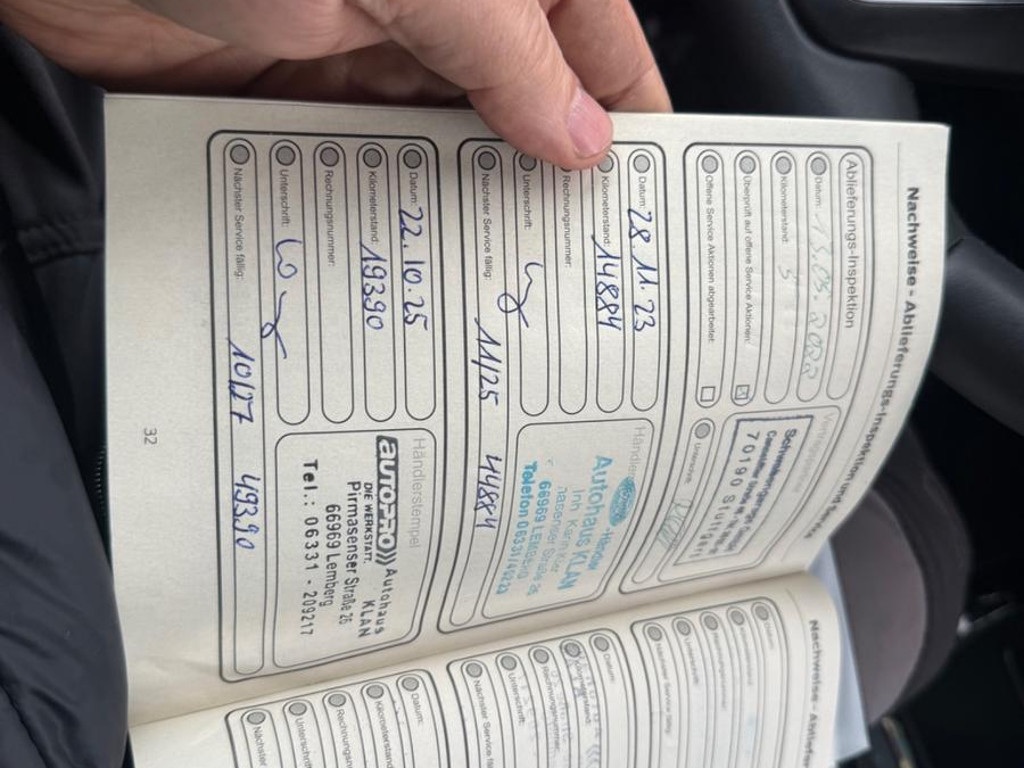 Nachweise - Ablieferungs-Inspektion und Service
Ablieferungs-Inspektion
Datum: 13.05.2022
Kilometerstand: 5
Überprüft auf offene Service Aktionen:
Offene Service Aktionen abgearbeitet:
Unterschrift:
70190 Stuttgart
Datum: 28.11.23
Kilometerstand: 14884
Rechnungsnummer:
Unterschrift:
Nächster Service fällig: 11/25 44884
Autohaus KLAN
66969 Lemberg
Telefon 06331/49233
Datum: 22.10.25
Kilometerstand: 19390
Rechnungsnummer:
Unterschrift:
Nächster Service fällig: 10/27 49390
Händlerstempel
auto-PRO))) Autohaus
DIE WERKSTATT. KLAN
Pirmasenser Straße 26
66969 Lemberg
Tel.: 06331 - 209217
32
Nachweise - Ablieferu
Datum:
Unterschrift:
Nächster Service fällig:
Datum:
Rechnungsnummer:
Unterschrift:
Nächster Service fäll
Datum:
Kilometerstand
Rechnungsn
Unterschrift:
Nächster